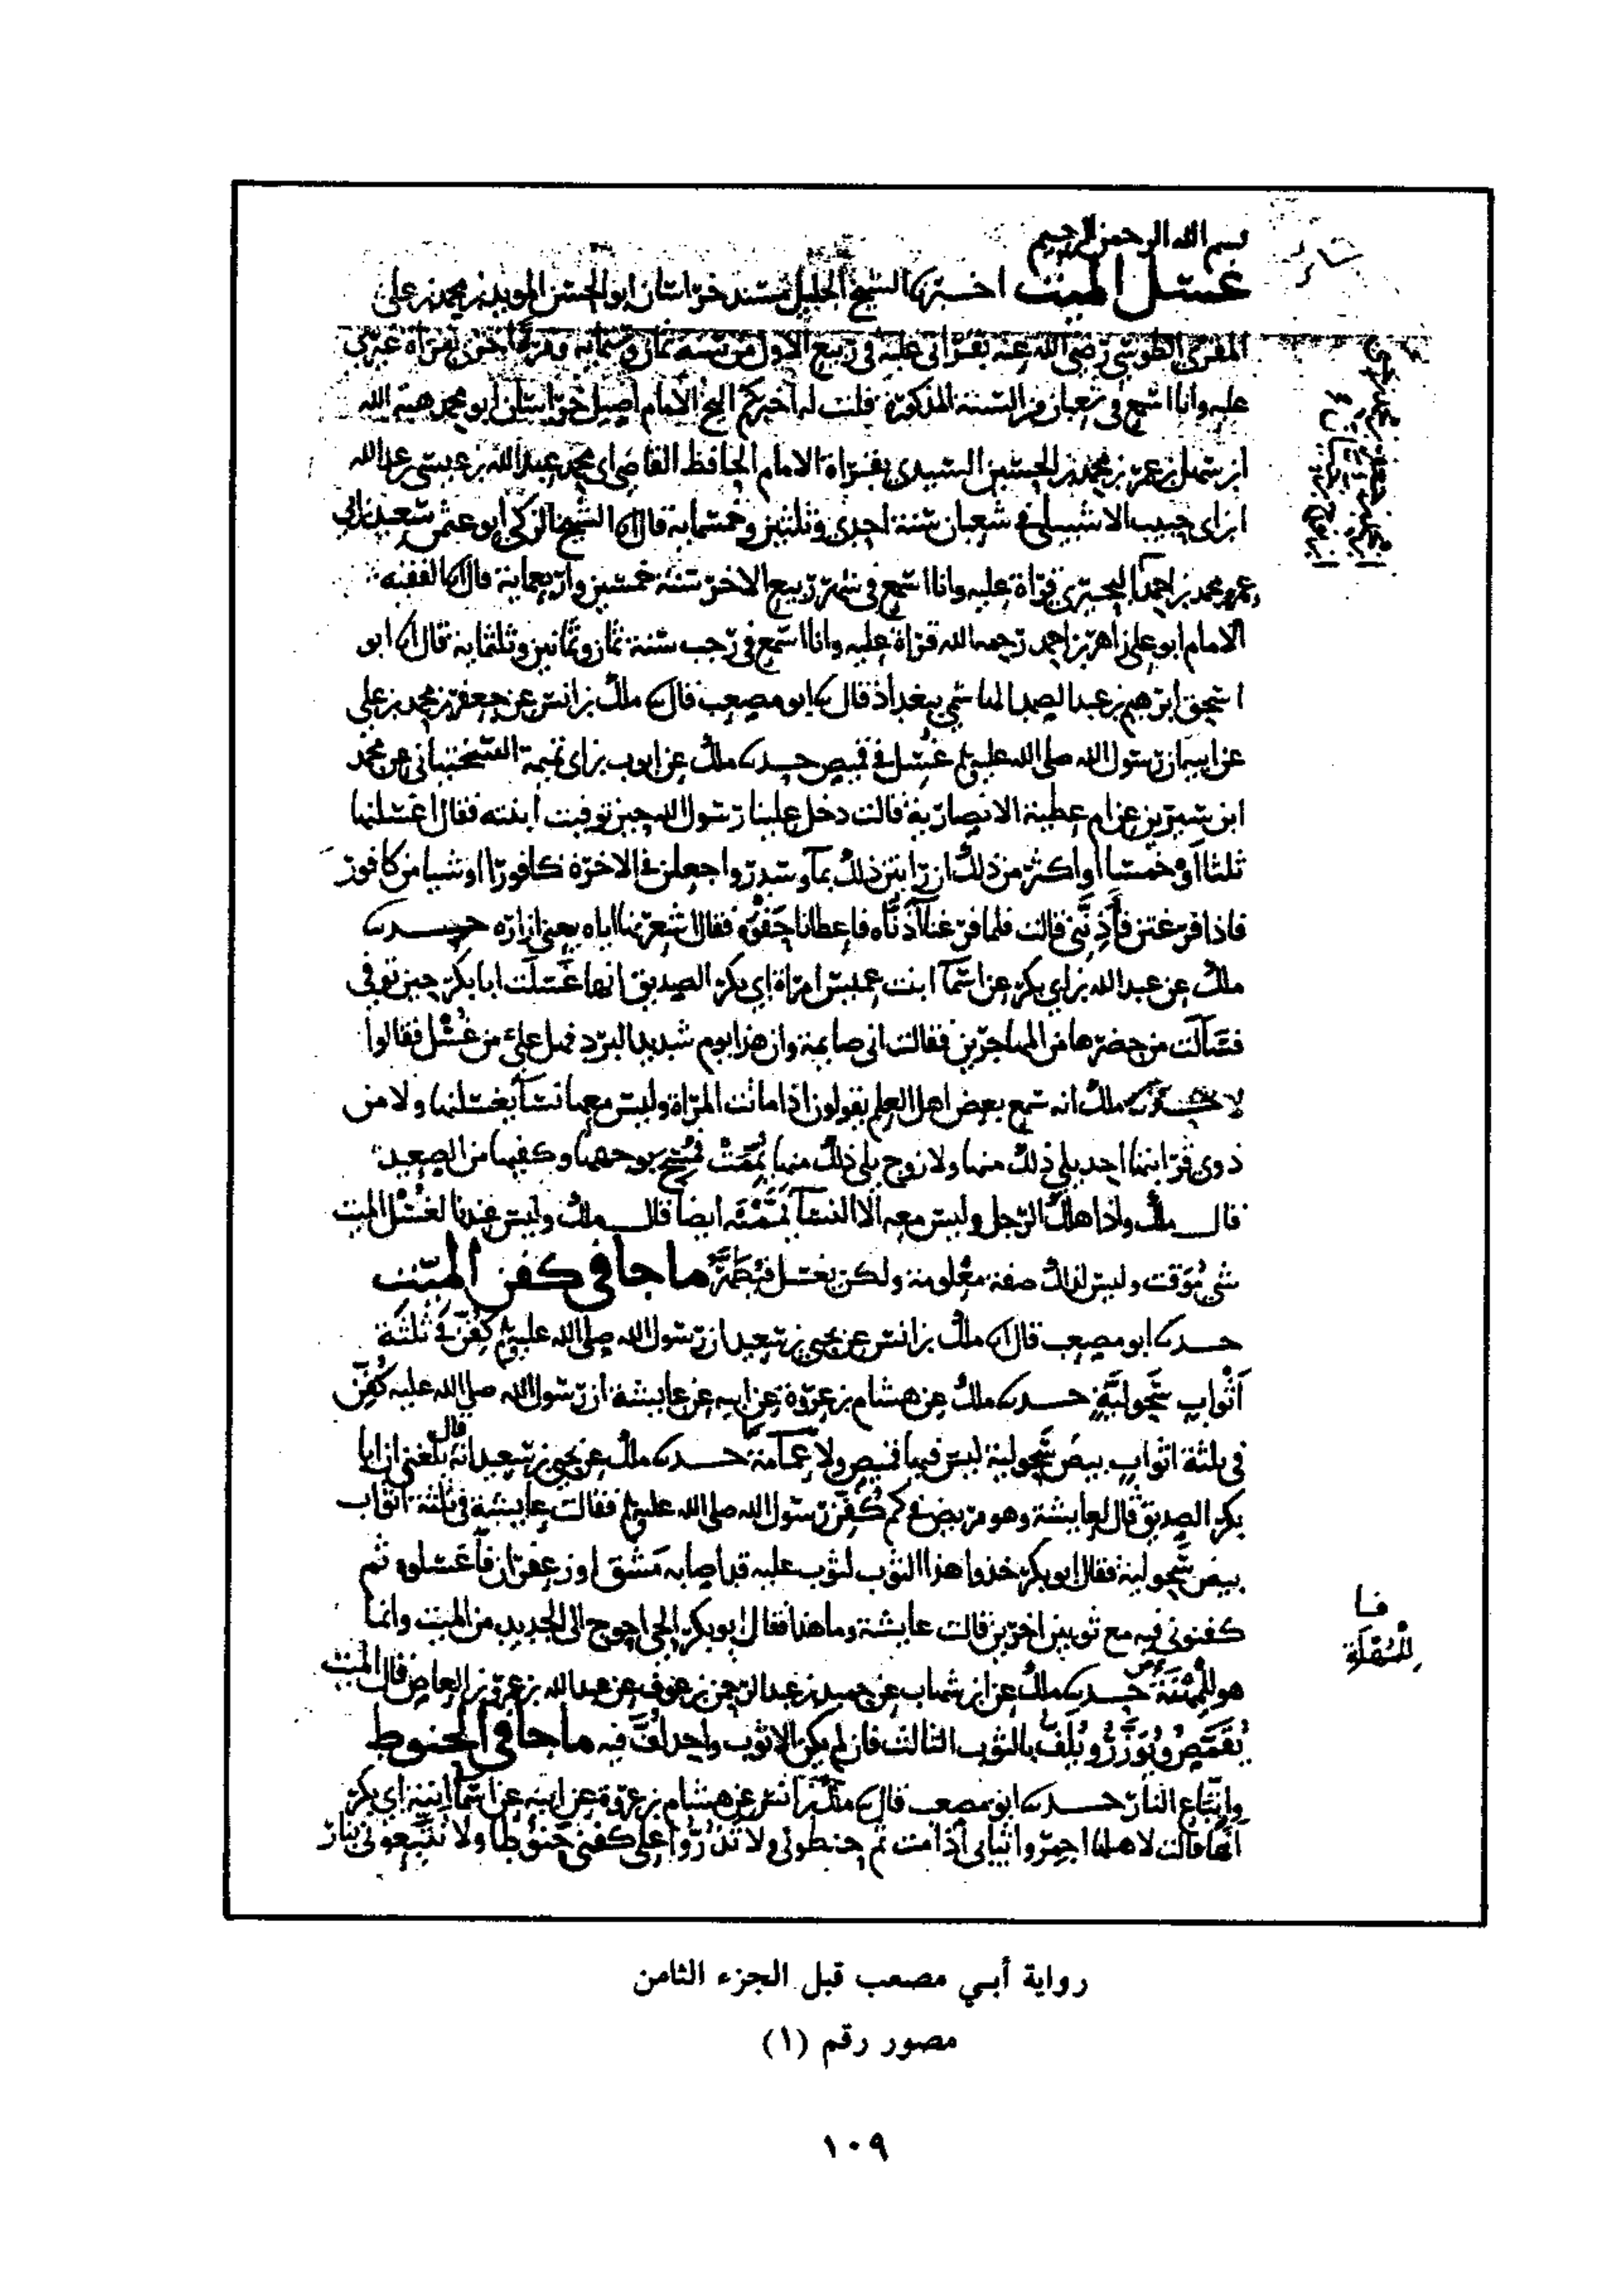 بسم الله الرحمن الرحيم
غسل الميت اخبرنا الشيخ الجليل مسند خراسان ابو الحسن المويد بن محمد بن علي
المقري الطوسي رضي الله عنه بقراتي عليه في ربيع الاول من سنة ثمان وستمايه ومرة اخرى بقراة غيري
عليه وانا اسمع في شعبان من السنة المذكورة قلت له اخبركم الشيخ الامام اصيل خراسان ابو محمد هبة الله
ابن سهل بن عمر بن محمد بن الحسين السيدي بقراة الامام الحافظ القاضي ابي محمد عبد الله بن عيسى بن عبد الله
ابن ابي حبيب الاشبيلي في شعبان سنة احدى وثلثين وخمسماية قال انا الشيخ الزكي ابو عثمن سعيد بن ابي
عمرو محمد بن احمد البحيري قراة عليه وانا اسمع في شهر ربيع الاخر سنة خمسين واربعماية قال انا الفقيه
الامام ابو علي زاهر بن احمد رحمه الله قراة عليه وانا اسمع في رجب سنة ثمان وثمانين وثلثماية قال انا ابو
اسحق ابرهيم بن عبد الصمد الهاشمي ببغداذ قال نا ابو مصعب قال نا ملك بن انس عن جعفر بن محمد بن علي
عن ابيه ان رسول الله صلى الله عليه وسلم غُسل في قميص حدثنا ملك عن ايوب بن ابي تميمة السختياني عن محمد
ابن سيرين عن ام عطية الانصارية قالت دخل علينا رسول الله حين توفيت ابنته فقال اغسلنها
ثلثا او خمسا او اكثر من ذلك ان رايتن ذلك بمآ وسدر واجعلن في الاخرة كافورا او شيا من كافور
فاذا فرغتن فآذِنَّني قالت فلما فرغنا آذنّاه فاعطانا حَقْوه فقال اشعرنها اياه يعني ازاره حدثنا
ملك عن عبد الله بن ابي بكر عن اسمآ ابنت عميس امراة ابي بكر الصديق انها غسلت ابا بكر حين توفي
فسالت من حضرها من المهاجرين فقالت اني صايمة وان هذا يوم شديد البرد فهل علي من غُسْل فقالوا
لا حدثنا ملك انه سمع بعض اهل العلم يقولون اذا ماتت المراة وليس معها نسآ يغسلنها ولا من
ذوي قرابتها احد يلي ذلك منها ولا زوج يلي ذلك منها يُمِّمَتْ فمُسح بوجهها وكفيها من الصعيد
قال ملك واذا هلك الرجل وليس معه الا النسآ يَمَّمْنَه ايضا قال ملك وليس عندنا لغسل الميت
شي مُوَقت وليس لذلك صفة معلومة ولكن يغسل فيُطهَّر ما جا في كفن الميّت
حدثنا ابو مصعب قال نا ملك بن انس عن يحيى بن سعيد ان رسول الله صلى الله عليه وسلم كُفِّن في ثلثة
أثوابٍ سَحولية حدثنا ملك عن هشام بن عروة عن ابيه عن عايشة ان رسول الله صلى الله عليه كُفِّن
في ثلثة اثواب بيض سَحولية ليس فيها قميص ولا عمامة حدثنا ملك عن يحيى بن سعيد انه قال بلغني ان ابا
بكر الصديق قال لعايشة وهو مريض في كم كُفِّن رسول الله صلى الله عليه وسلم فقالت عايشة في ثلثة اثواب
بيض سَحولية فقال ابو بكر خذوا هذا الثوب لثوب عليه قد اصابه مَشق او زعفران فاغسلوه ثم
كفنوني فيه مع ثوبين اخرين قالت عايشة وما هذا فقال ابو بكر الحي احوج الى الجديد من الميت وانما
هو للمُهْنَة حدثنا ملك عن ابن شهاب عن حميد بن عبد الرحمن بن عوف عن عبد الله بن عمرو بن العاص قال الميت
يُقَمّصُ ويُؤزّرُ ويُلَفّ بالثوب الثالث فان لم يكن الا ثوب واحد لُفّ فيه ما جا في الحنوط
واتّباع النار حدثنا ابو مصعب قال نا ملك بن انس عن هشام بن عروة عن ابيه عن اسمآ ابنة ابي بكر
أنها قالت لاهلها اجمروا ثيابي اذا مت ثم حنطوني ولا تذُرّوا على كفني حَنوطا ولا تتبعوني بنار
فا
للمُهْلَة
رواية أبي مصعب قبل الجزء الثامن
مصور رقم (١)
١٠٩